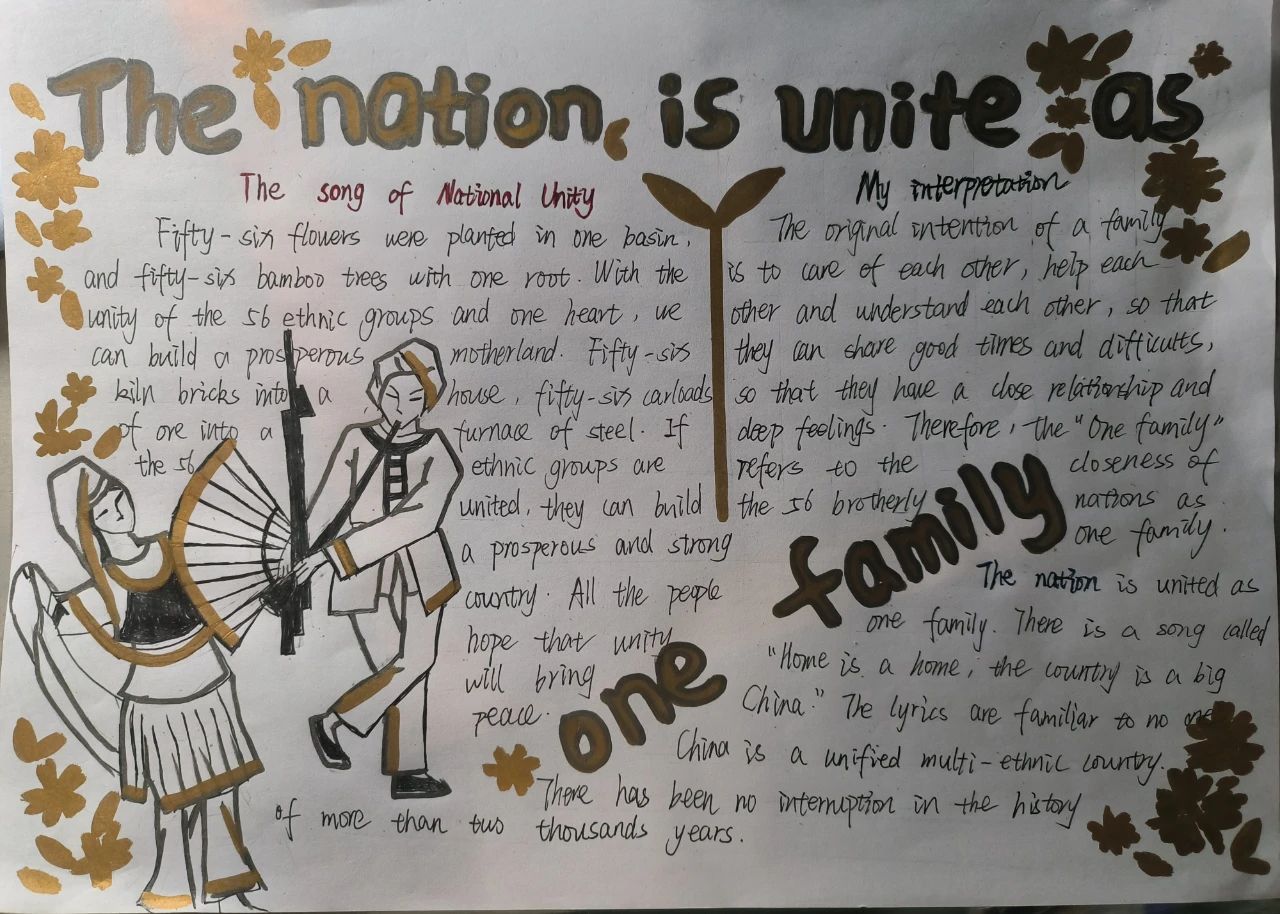 The nation is unite as
one family
The song of National Unity
Fifty-six flowers were planted in one basin,
and fifty-six bamboo trees with one root. With the
unity of the 56 ethnic groups and one heart, we
can build a prosperous motherland. Fifty-six
kiln bricks into a house, fifty-six carloads
of ore into a furnace of steel. If
the 56 ethnic groups are
united, they can build
a prosperous and strong
country. All the people
hope that unity
will bring
peace.
My interpretation
The original intention of a family
is to care of each other, help each
other and understand each other, so that
they can share good times and difficults,
so that they have a close relationship and
deep feelings. Therefore, the "One family"
refers to the closeness of
the 56 brotherly nations as
one family.
The nation is united as
one family. There is a song called
"Home is a home, the country is a big
China." The lyrics are familiar to no one
China is a unified multi-ethnic country.
There has been no interruption in the history
of more than two thousands years.